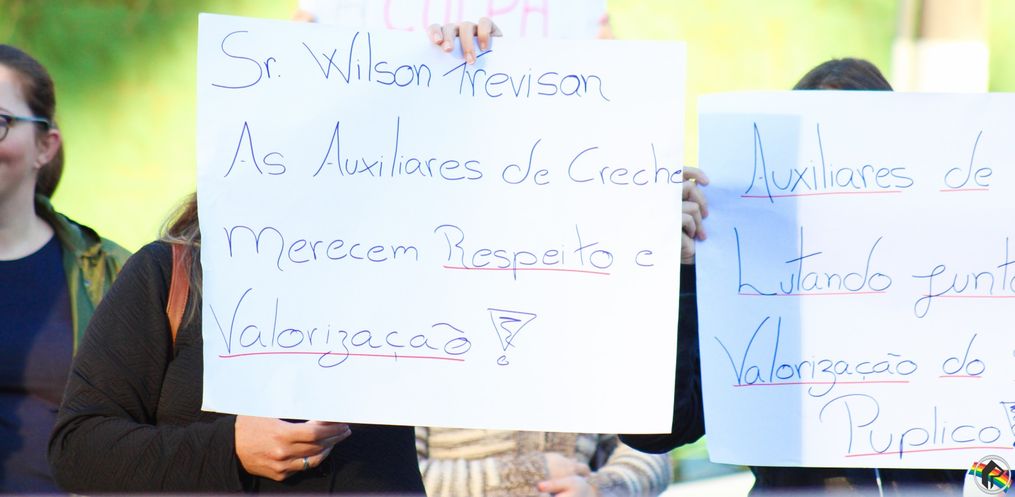 CULPA
Sr. Wilson Trevisan
As Auxiliares de Creche
Merecem Respeito e
Valorização!
Auxiliares de
Lutando junto
Valorização do
Puplico!